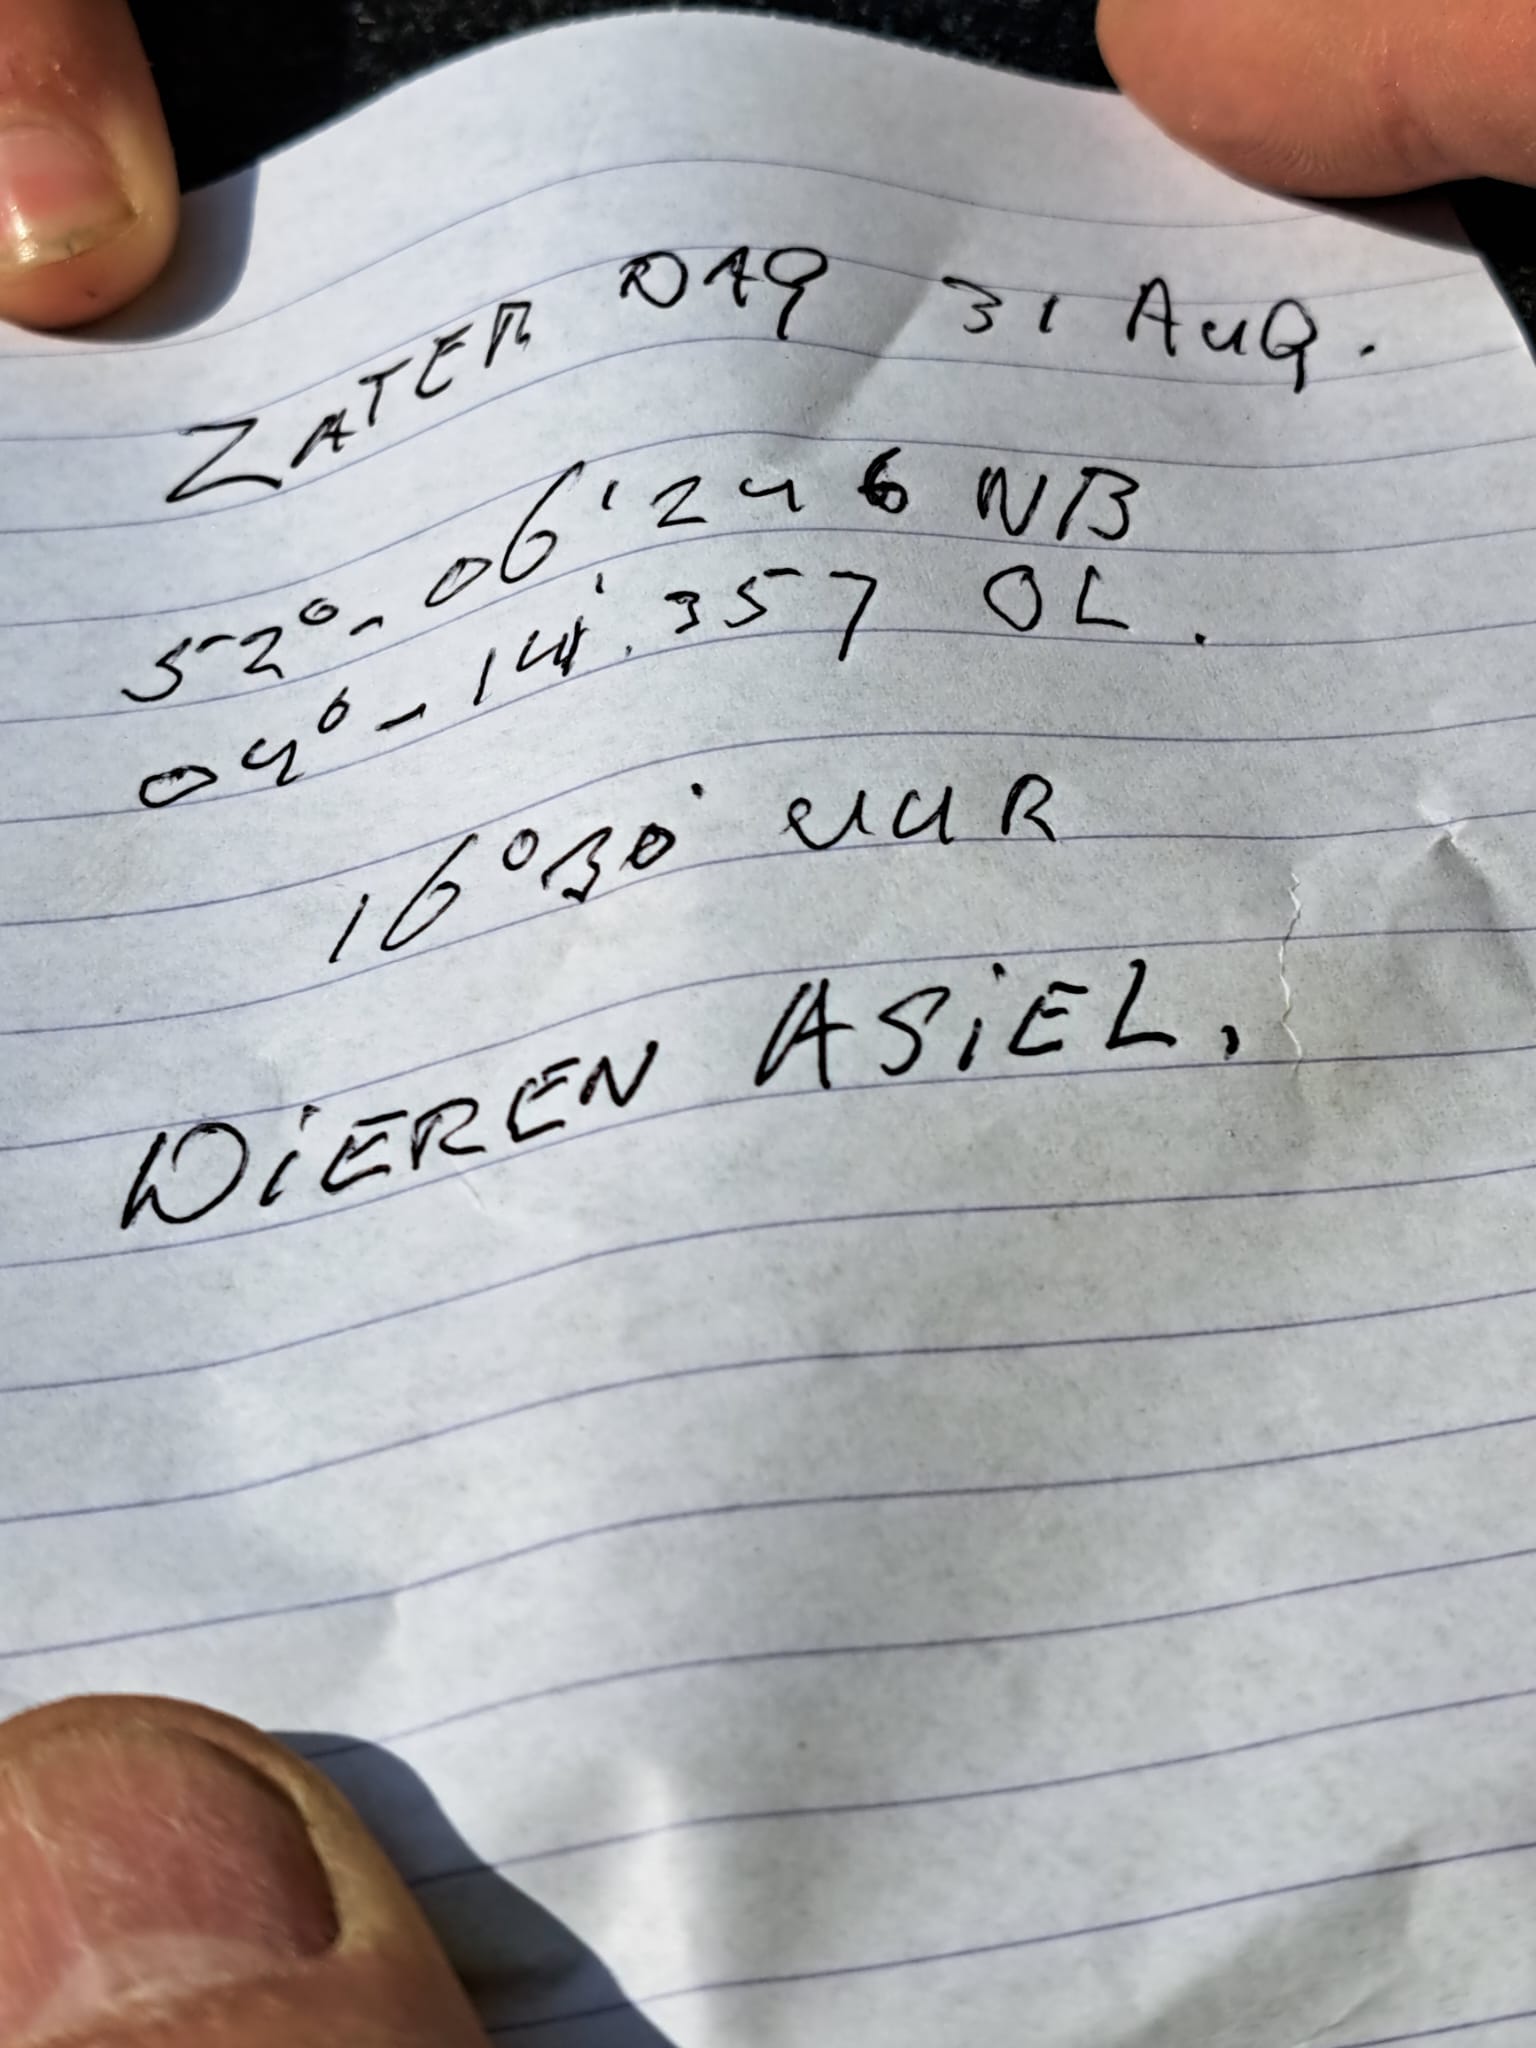 ZATERDAG 31 AUG.
52°- 06'246 NB
04°- 14'.357 OL.
16°30' UUR
DIEREN ASIEL.